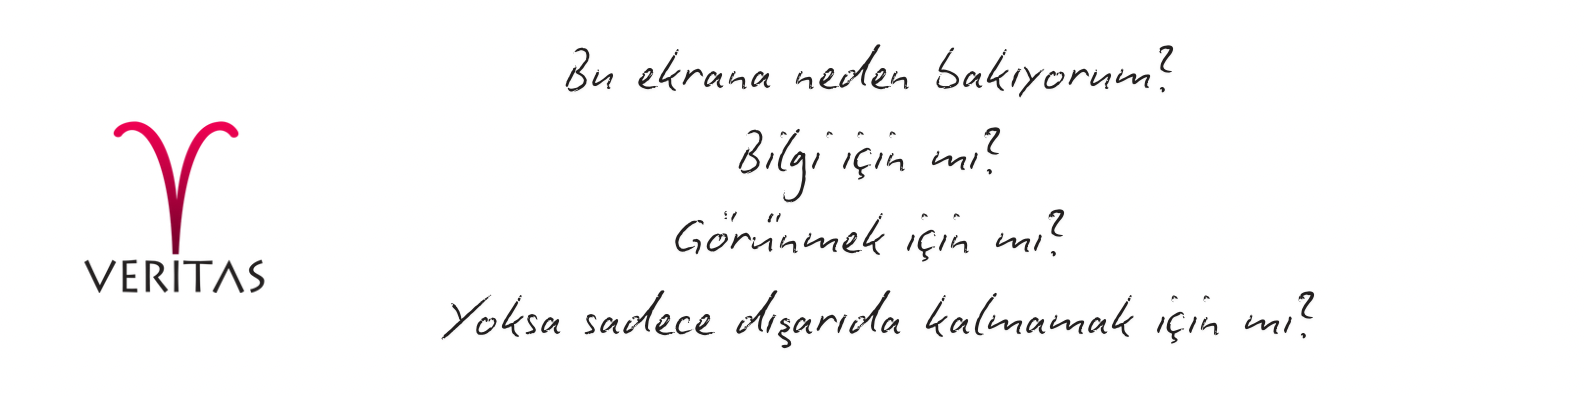 VERITAS
Bu ekrana neden bakıyorum?
Bilgi için mi?
Görünmek için mi?
Yoksa sadece dışarıda kalmamak için mi?